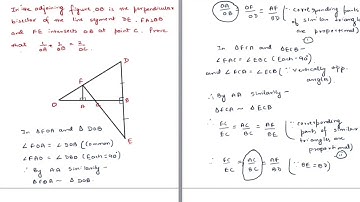 In the adjoining figure OB is the perpendicular
bisector of the line segment DE, FA⊥OB
and FE intersects OB at point C. Prove
that 1/OA + 1/OB = 2/OC.
D
F
O
A
B
E
In ΔFOA and ΔDOB
∠FOA = ∠DOB (Common)
∠FAO = ∠DBO (Each=90°)
∴ By AA similarity -
ΔFOA ~ ΔDOB
OA/OB = OF/OD = AF/BD (∵ corresponding
parts of similar
triangles are
proportional)
In ΔFCA and ΔECB -
∠FAC = ∠EBC (∵ Each=90°)
and ∠FCA = ∠ECB (∵ vertically opp.
angles)
∴ By AA similarity -
ΔFCA ~ ΔECB
FC/EC = AC/BC = AF/BE (∵ corresponding
parts of similar
triangles are
proportional)
FC/EC = AC/BC = AF/BD (∵ BE=BD)